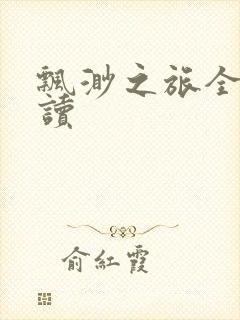 飄渺之旅全
讀
俞紅霞